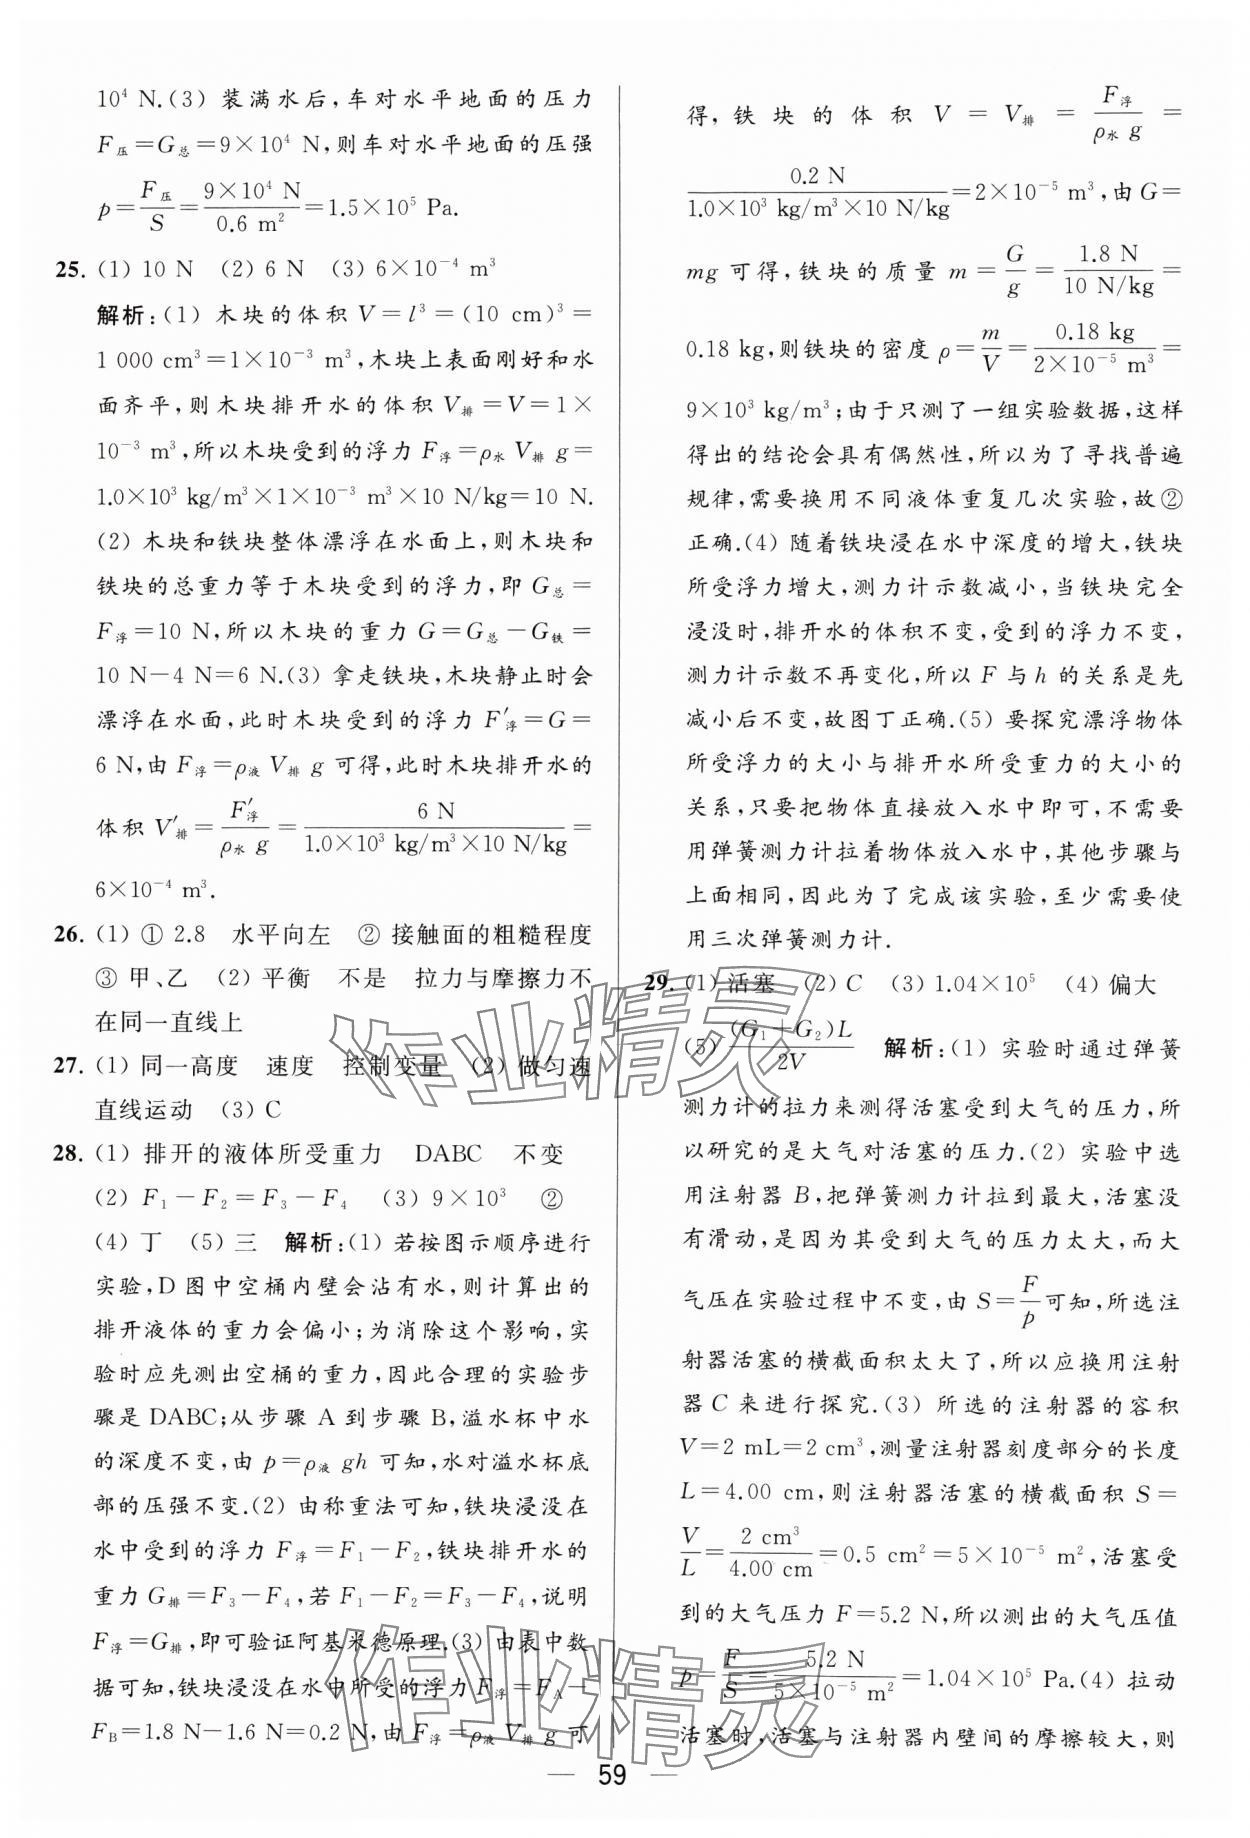 10⁴ N.(3) 装满水后,车对水平地面的压力
F压=G总=9×10⁴ N,则车对水平地面的压强
p=F压/S=9×10⁴ N/0.6 m²=1.5×10⁵ Pa.
25. (1) 10 N (2) 6 N (3) 6×10⁻⁴ m³
解析:(1) 木块的体积 V=l³=(10 cm)³=
1 000 cm³=1×10⁻³ m³,木块上表面刚好和水
面齐平,则木块排开水的体积 V排=V=1×
10⁻³ m³,所以木块受到的浮力 F浮=ρ水 V排 g=
1.0×10³ kg/m³×1×10⁻³ m³×10 N/kg=10 N.
(2) 木块和铁块整体漂浮在水面上,则木块和
铁块的总重力等于木块受到的浮力,即 G总=
F浮=10 N,所以木块的重力 G=G总-G铁=
10 N-4 N=6 N.(3) 拿走铁块,木块静止时会
漂浮在水面,此时木块受到的浮力 F′浮=G=
6 N,由 F浮=ρ液 V排 g 可得,此时木块排开水的
体积 V′排=F′浮/ρ水 g=6 N/1.0×10³ kg/m³×10 N/kg=
6×10⁻⁴ m³.
26. (1) ① 2.8 水平向左 ② 接触面的粗糙程度
③ 甲、乙 (2) 平衡 不是 拉力与摩擦力不
在同一直线上
27. (1) 同一高度 速度 控制变量 (2) 做匀速
直线运动 (3) C
28. (1) 排开的液体所受重力 DABC 不变
(2) F₁-F₂=F₃-F₄ (3) 9×10³ ②
(4) 丁 (5) 三 解析:(1) 若按图示顺序进行
实验,D 图中空桶内壁会沾有水,则计算出的
排开液体的重力会偏小;为消除这个影响,实
验时应先测出空桶的重力,因此合理的实验步
骤是 DABC;从步骤 A 到步骤 B,溢水杯中水
的深度不变,由 p=ρ液 gh 可知,水对溢水杯底
部的压强不变.(2) 由称重法可知,铁块浸没在
水中受到的浮力 F浮=F₁-F₂,铁块排开水的
重力 G排=F₃-F₄,若 F₁-F₂=F₃-F₄,说明
F浮=G排,即可验证阿基米德原理.(3) 由表中数
据可知,铁块浸没在水中所受的浮力 F浮=F_A-
F_B=1.8 N-1.6 N=0.2 N,由 F浮=ρ液 V排 g 可
得,铁块的体积 V=V排=F浮/ρ水 g=
0.2 N/1.0×10³ kg/m³×10 N/kg=2×10⁻⁵ m³,由 G=
mg 可得,铁块的质量 m=G/g=1.8 N/10 N/kg=
0.18 kg,则铁块的密度 ρ=m/V=0.18 kg/2×10⁻⁵ m³=
9×10³ kg/m³;由于只测了一组实验数据,这样
得出的结论会具有偶然性,所以为了寻找普遍
规律,需要换用不同液体重复几次实验,故②
正确.(4) 随着铁块浸在水中深度的增大,铁块
所受浮力增大,测力计示数减小,当铁块完全
浸没时,排开水的体积不变,受到的浮力不变,
测力计示数不再变化,所以 F 与 h 的关系是先
减小后不变,故图丁正确.(5) 要探究漂浮物体
所受浮力的大小与排开水所受重力的大小的
关系,只要把物体直接放入水中即可,不需要
用弹簧测力计拉着物体放入水中,其他步骤与
上面相同,因此为了完成该实验,至少需要使
用三次弹簧测力计.
29. (1) 活塞 (2) C (3) 1.04×10⁵ (4) 偏大
(5) (G₁+G₂)L/2V 解析:(1) 实验时通过弹簧
测力计的拉力来测得活塞受到大气的压力,所
以研究的是大气对活塞的压力.(2) 实验中选
用注射器 B,把弹簧测力计拉到最大,活塞没
有滑动,是因为其受到大气的压力太大,而大
气压在实验过程中不变,由 S=F/p可知,所选注
射器活塞的横截面积太大了,所以应换用注射
器 C 来进行探究.(3) 所选的注射器的容积
V=2 mL=2 cm³,测量注射器刻度部分的长度
L=4.00 cm,则注射器活塞的横截面积 S=
V/L=2 cm³/4.00 cm=0.5 cm²=5×10⁻⁵ m²,活塞受
到的大气压力 F=5.2 N,所以测出的大气压值
p=F/S=5.2 N/5×10⁻⁵ m²=1.04×10⁵ Pa.(4) 拉动
活塞时,活塞与注射器内壁间的摩擦较大,则
— 59 —
作业精灵
作业精灵